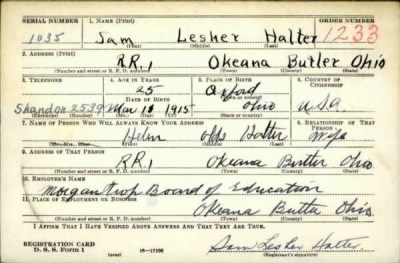 SERIAL NUMBER 1. NAME (Print) ORDER NUMBER
1035 Sam Lesher Halter 1233
(First) (Middle) (Last)
2. ADDRESS (Print)
RR.1 Okeana Butler Ohio
(Number and street or R. F. D. number) (Town) (County) (State)
3. TELEPHONE 4. AGE IN YEARS 5. PLACE OF BIRTH 6. COUNTRY OF CITIZENSHIP
25 Oxford
DATE OF BIRTH (Town or county)
Shandon 2539 Mar 1915 Ohio USA
(Exchange) (Number) (Mo.) (Day) (Yr.) (State or country)
7. NAME OF PERSON WHO WILL ALWAYS KNOW YOUR ADDRESS 8. RELATIONSHIP OF THAT PERSON
Helen Halter Wife
(Mr., Mrs., Miss) (First) (Middle) (Last)
9. ADDRESS OF THAT PERSON
RR.1 Okeana Butler Ohio
(Number and street or R. F. D. number) (Town) (County) (State)
10. EMPLOYER'S NAME
Morgan Board of Education
11. PLACE OF EMPLOYMENT OR BUSINESS
Okeana Butler Ohio
(Number and street or R. F. D. number) (Town) (County) (State)
I AFFIRM THAT I HAVE VERIFIED ABOVE ANSWERS AND THAT THEY ARE TRUE.
REGISTRATION CARD
D. S. S. FORM 1 (over) 16-17105 Sam Lesher Halter
(Registrant's signature)